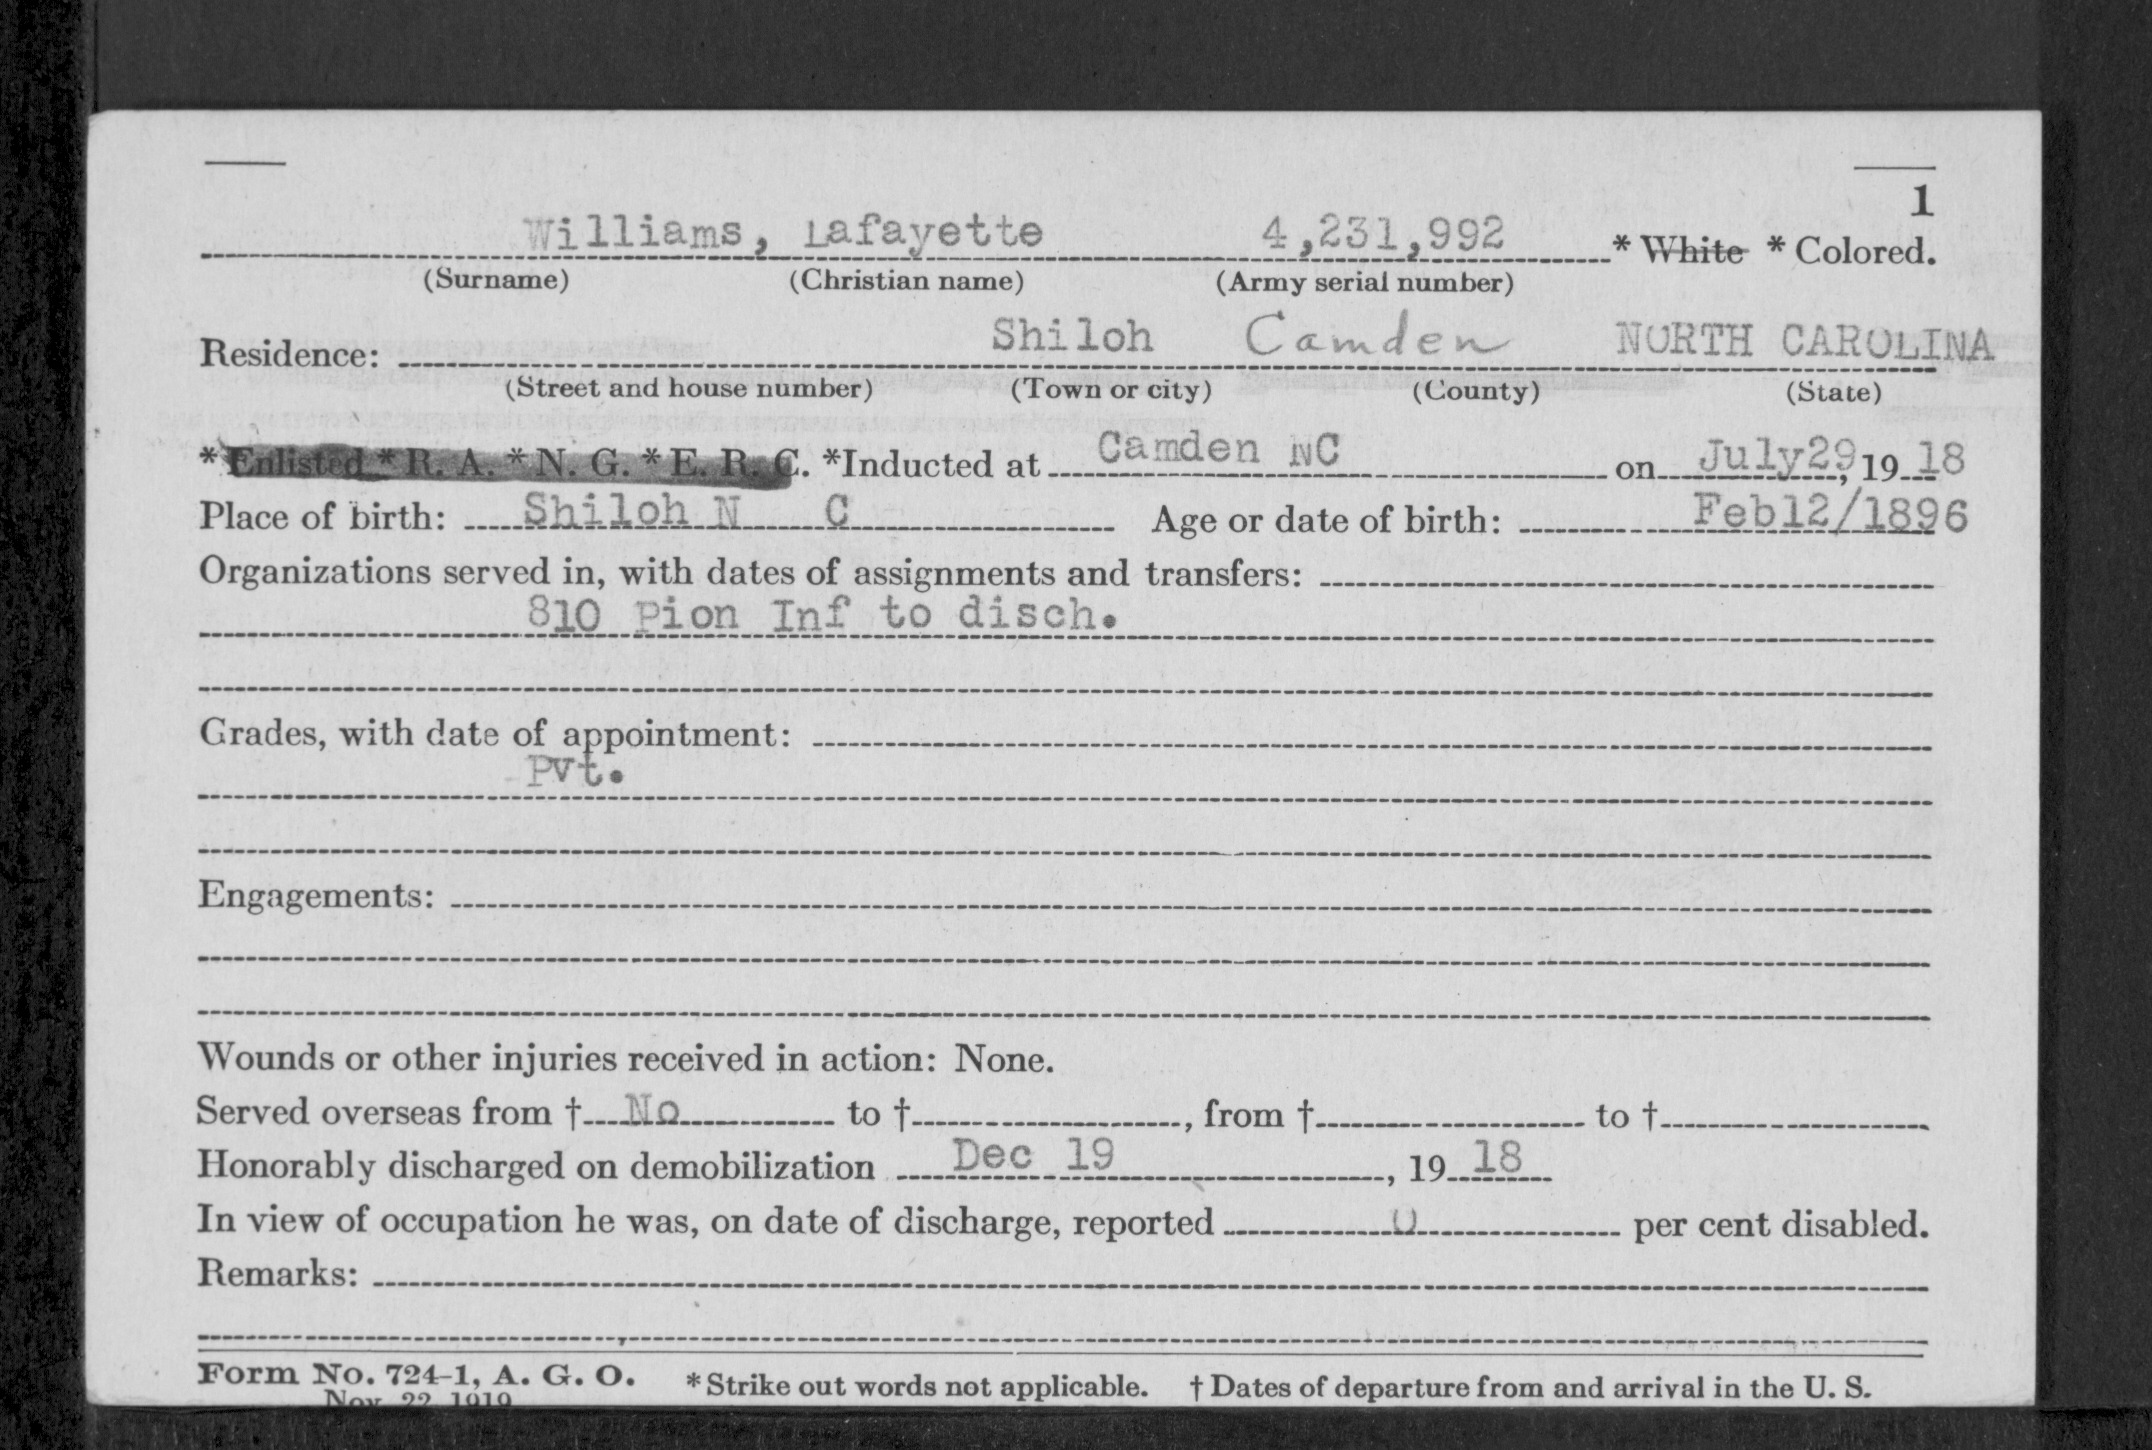 1
Williams, Lafayette 4,231,992 * White * Colored.
(Surname) (Christian name) (Army serial number)
Residence: Shiloh Camden NORTH CAROLINA
(Street and house number) (Town or city) (County) (State)
* Enlisted * R. A. * N. G. * E. R. C. *Inducted at Camden NC on July29, 19 18
Place of birth: Shiloh N C Age or date of birth: Feb12/1896
Organizations served in, with dates of assignments and transfers:
810 Pion Inf to disch.
Grades, with date of appointment:
Pvt.
Engagements:
Wounds or other injuries received in action: None.
Served overseas from † No to †, from † to †
Honorably discharged on demobilization Dec 19, 19 18
In view of occupation he was, on date of discharge, reported 0 per cent disabled.
Remarks:
Form No. 724-1, A. G. O. * Strike out words not applicable. † Dates of departure from and arrival in the U. S.
Nov. 22, 1919